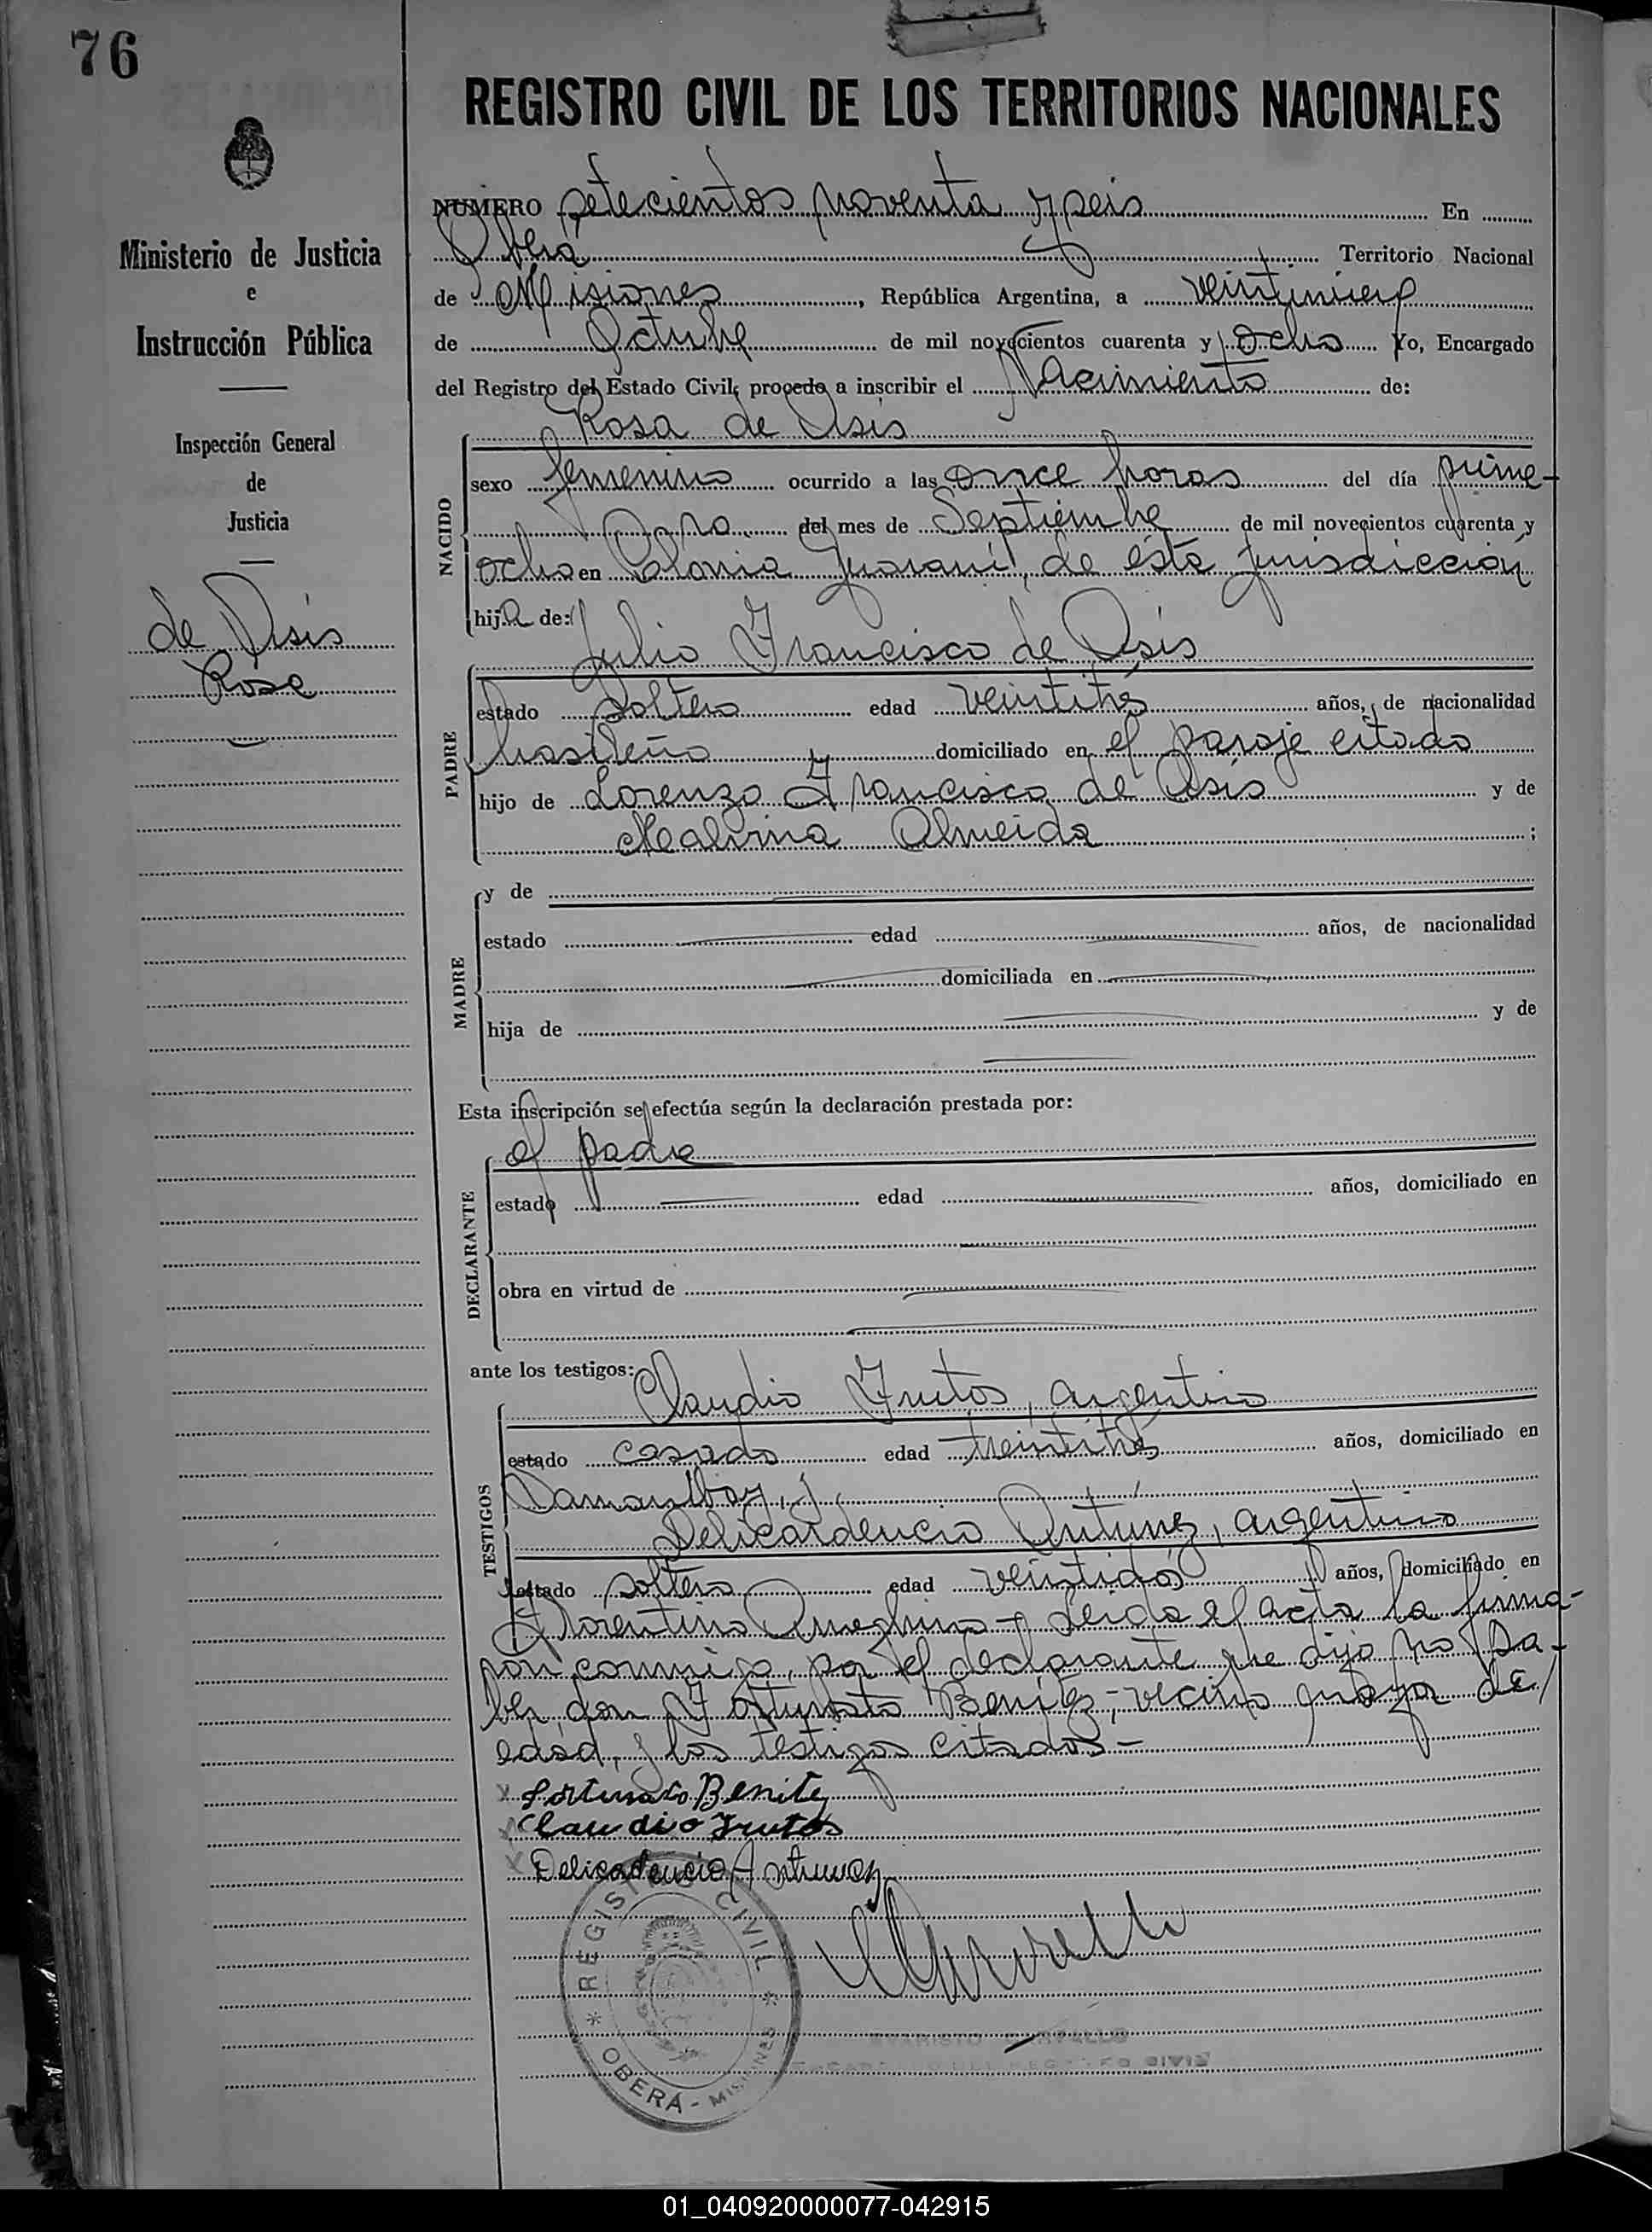 76
REGISTRO CIVIL DE LOS TERRITORIOS NACIONALES
Ministerio de Justicia
e
Instrucción Pública
Inspección General
de
Justicia
de Asis
Rosa
NUMERO setecientos noventa y seis En
Oberá Territorio Nacional
de Misiones, República Argentina, a veintinueve
de Octubre de mil novecientos cuarenta y ocho Yo, Encargado
del Registro del Estado Civil, procedo a inscribir el Nacimiento de:
Rosa de Asis
NACIDO
sexo femenino ocurrido a las once horas del día prime-
ro del mes de Septiembre de mil novecientos cuarenta y
ocho en Colonia Guaraní, de ésta jurisdicción
hija de:
Julio Francisco de Asis
PADRE
estado soltero edad veintitrés años, de nacionalidad
brasileño domiciliado en el paraje citado
hijo de Lorenzo Francisco de Asis y de
Malvina Almeida ;
MADRE
y de
estado edad años, de nacionalidad
domiciliada en
hija de y de
Esta inscripción se efectúa según la declaración prestada por:
el padre
DECLARANTE
estado edad años, domiciliado en
obra en virtud de
ante los testigos:
Claudio Frutos, argentino
TESTIGOS
estado casado edad treintitrés años, domiciliado en
y
Delicardencio Antúnez, argentino
estado soltero edad veintidós años, domiciliado en
Florentino Ameghino - Leída el acta la firma-
ron conmigo, por el declarante que dijo no sa-
ber, don Fortunato Benítez, vecino mayor de
edad, y los testigos citados -
x Fortunato Benitez
x Claudio Frutos
x Delicadencio Antunez
REGISTRO CIVIL
OBERÁ - MISIONES
REGISTRO CIVIL
01_040920000077-042915